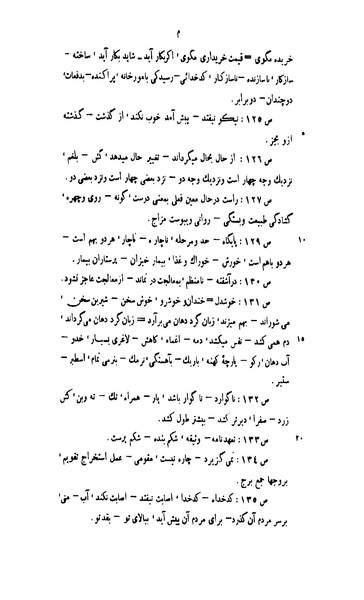 م
خریده مگوی = قیمت خریداری مگوی ' اگر بکار آید – شاید بکار آید ' ساخته –
سازگار ' ناسازنده – ناسازگار ' کدخدائی – رسیدگی بامور خانه ' پراکنده – بدفعات '
دوچندان – دو برابر.
ص ۱۲۵ : نیکو نیفتد – پیش آمد خوب نکند ' از گذشت – گذشته
۵
ازو بجز.
ص ۱۲۶ : از حال بحال میگرداند – تغییر حال میدهد ' کش – بلغم '
نزدیك وجه چهار است ونزدیك وجه دو – نزد بعضی چهار است ونزد بعضی دو.
ص ۱۲۷ : راست درحال معین فعلی بمعنی درست ' گونه – روی وچهره '
گشادگی طبیعت وبستگی – روانی ویبوست مزاج.
ص ۱۲۹ : پایگاه – حد ومرحله ' ناچاره – ناچار ' هردو بهم است –
۱۰
هردو باهم است ' خورش – خوراك و غذا ' بیمار خیزان – پرستاران بیمار.
ص ۱۳۰ : درآشفته – نامنظم ' بمعالجت در نماند – از معالجت عاجز نشود.
ص ۱۳۱ : خوشدل = خندان و خوشرو ' خوش سخن – شیرین سخن
می شوراند – بهم میزند ' زبان گرد دهان می برآرد = زبان گرد دهان می گرداند '
دم همی کند – نفس میکشد ' دمه – اغماء ' کاهش – لاغری بسیار ' خدو –
۱۵
آب دهان ' رکو – پارچهٔ کهنه ' باریك – بآهستگی ' نرمك – بنرمی تمام ' اسطبر –
ستبر.
ص ۱۳۲ : ناگوارد – نا گوار باشد ' یار – همراه ' تك – ته وبن ' کش
زرد – صفرا ' دیرتر کند – بیشتر طول کشد.
ص ۱۳۳ : تعهدنامه – وثیقه ' شکم بنده – شکم پرست.
۲۰
ص ۱۳٤ : نمی گزیرد – چاره نیست ' مقومی – عمل استخراج تقویم '
بروجها جمع برج.
ص ۱۳۵ : کدخداه – کدخدا ' اصابت نیفتد – اصابت نکند ' آب – منی '
برسر مردم آن گذرد – برای مردم آن پیش آید ' ببالای تو – بقد تو.